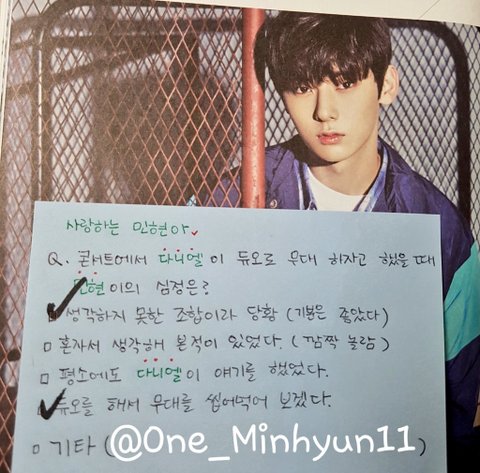 사랑하는 민현아
Q. 콘서트에서 다니엘이 듀오로 무대 하자고 했을 때
민현이의 심정은?
생각하지 못한 조합이라 당황 (기분은 좋았다)
□ 혼자서 생각해 본적이 있었다. (깜짝 놀람)
□ 평소에도 다니엘이 얘기를 했었다.
듀오를 해서 무대를 씹어먹어 보겠다.
□ 기타 (
@One_Minhyun11